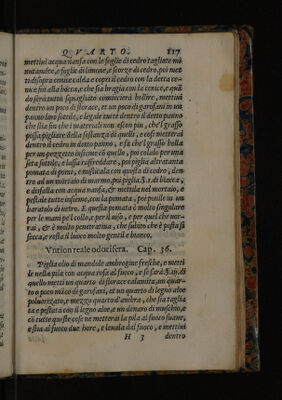 QVARTO. 117
mettivi acqua nanfa con le foglie di cedro tagliate mi
nutamente, e foglie di limone, e scorze di cedro, poi met
ti disopra cenice calda e copri il cedro con la detta ce-
nice fin alla bocca, e che sia bragia con la cenice, e quã
do serà tutto squagliato comincierà bollire, mettivi
dentro un poco di storace, et un poco di garofani in un
panno lino sottile, e legale tutte dentro il detto panno
che stia fin che i matteriali non escan piu, che'l grasso
possa pigliare della sustanza di quelli, e così metterai
dentro il cedro in detto panno, e fa che'l grasso bolla
per un pezzetto insieme cõ quello, poi colalo per una
seta sottile, e lassa raffreddare, poi piglia altretanta
pomata di pomi, e mescola con questa di cedro, den-
tro ad un mortaio di marmo, poi piglia 3. 1. di biacca,
e disfalla con acqua nanfa, et mettila nel mortaio, e
pestala tutte insieme, con la pomata, poi ponile in un
baratolo di vetro. E questa pomata è molto singulare
per le mani pe'l collo, e per il uiso, e per quel che uor-
rai, et è molto penetratiua, che subito che è posta si
secca, e resta il luoco molto gentil e bianco.
Vntion reale odorifera. Cap. 36.
Piglia olio di mandole ambrogine fresche, e metti
le nella pila con acqua rosa al fuoco, e se sarà di
quello metti un quarto di storace calamita, un quar-
to o poco māco di garofani, et un quarto di legno aloe
poluerizato, e mezzo quarto d'ambra, che sia taglia
ta e pestata con il legno aloe, e un denaro di muschio, e
cõ tutte queste cose ne metterai la pila al fuoco suaue,
e stia al fuoco due hore, e leuala dal fuoco, e mettivi
H 3 dentro